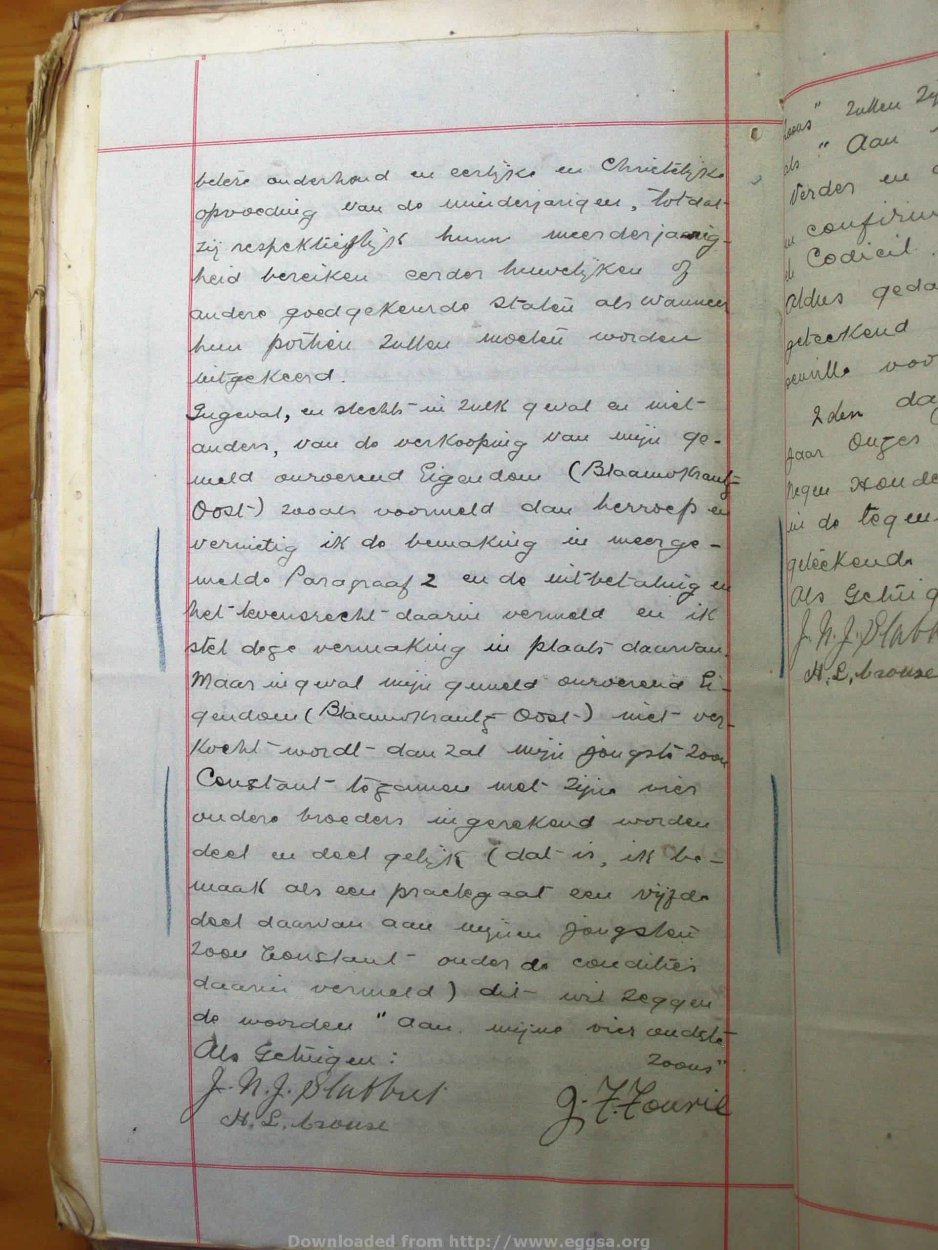 betere onderhoud en eerlijke en Christelijke
opvoeding van de minderjarigen, totdat
zij respektieflijk hunn meerderjarig-
heid bereiken eerder huwelijken of
andere goedgekeurde staten als wanneer
hun portien zullen moeten worden
uitgekeerd.
Ingeval, en slechts in zulk geval en niet
anders, van de verkooping van mijn ge-
meld onroerend Eigendom (Blaauwkrantz
Oost) zooals voormeld dan herroep en
vernietig ik de bemaking in meerge-
melde Paragraaf 2 en de uitbetaling en
het levensrecht daarin vermeld en ik
stel deze vermaking in plaats daarvan.
Maar ingeval mijn gemeld onroerend Ei-
gendom (Blaauwkrantz Oost) niet ver-
kocht wordt dan zal mijn jongste zoon
Constant tezamen met zijne vier
oudere broeders ingerekend worden
deel en deel gelijk (dat is, ik be-
maak als een praelegaat een vijfde
deel daarvan aan mijnen jongsten
zoon Constant onder de condities
daarin vermeld) dit wil zeggen
de woorden "aan mijne vier oudste
zoons"
Als Getuigen:
J. N. J. Slabbert
H. L. Crouse
zoons" zullen
als "Aan
Verder en
Codicil.
Aldus
geteekend
voor
2den
jaar Onzes
negen Honde
in de tegen
geteekende
Als Getuig
J. N. J. Slabb
H. L. Crouse
Downloaded from http://www.eggsa.org